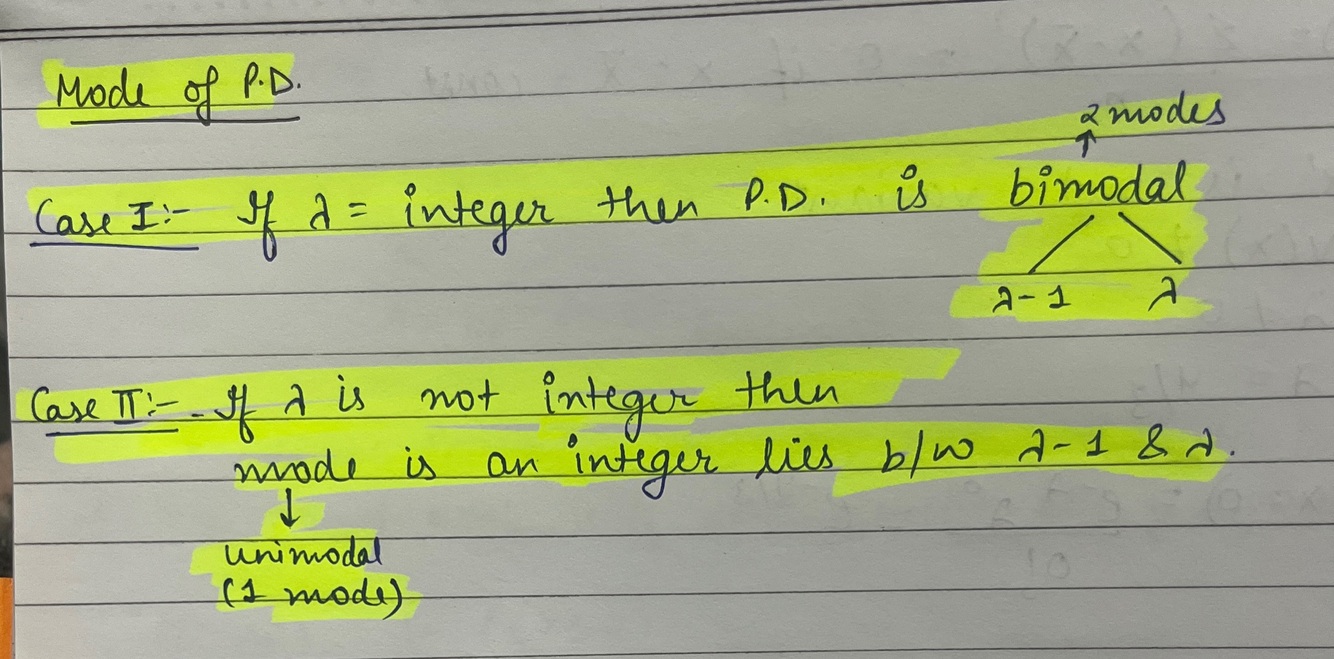 Mode of P.D.
2 modes
↑
Case I:- If λ = integer then P.D. is bimodal
λ-1 λ
Case II:- If λ is not integer then
mode is an integer lies b/w λ-1 & λ.
↓
unimodal
(1 mode)